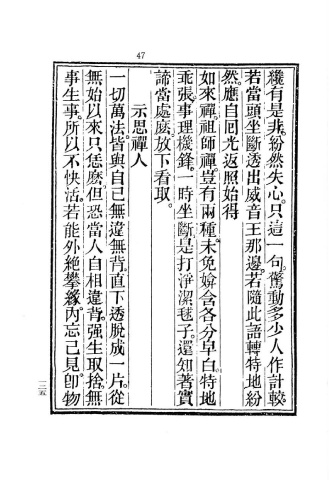 47
纔有是非。紛然失心。只這一句。驚動多少人作計較
若當頭坐斷透出威音王那邊。若隨此語轉特地紛
然。應自回光返照始得
如來禪。祖師禪。豈有兩種。未免媕含各分皁白。特地
乖張。事理機鋒。一時坐斷。是打淨潔毬子。還知著實
諦當處麽。放下看取。
示思禪人
一切萬法。皆與自己無違無背。直下透脫成一片。從
無始以來只恁麽。但恐當人自相違背。强生取捨。無
事生事。所以不快活。若能外絶攀緣。內忘己見。卽物
一三五